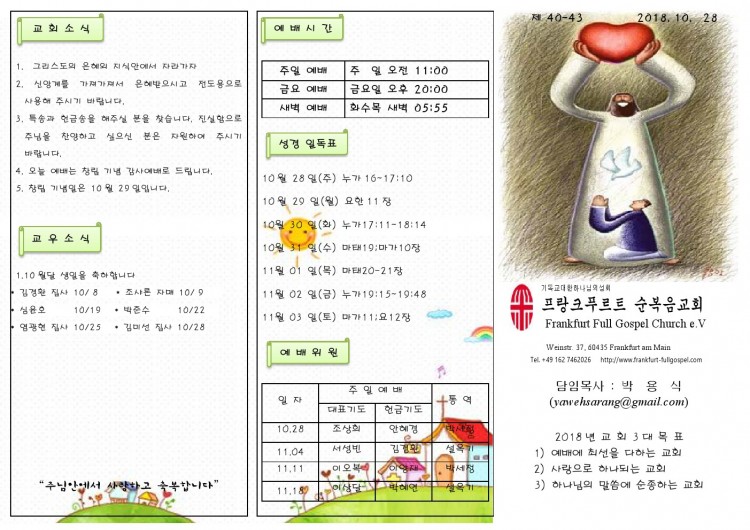 교 회 소 식
1. 그리스도의 은혜의 지식안에서 자라가자
2. 신앙계를 가져가셔서 은혜받으시고 전도용으로
사용해 주시기 바랍니다.
3. 특송과 헌금송을 해주실 분을 찾습니다. 진실함으로
주님을 찬양하고 싶으신 분은 자원하여 주시기
바랍니다.
4. 오늘 예배는 창립 기념 감사예배로 드립니다.
5. 창립 기념일은 10 월 29 일입니다.
교 우 소 식
1.10 월달 생일을 축하합니다
• 김경환 집사 10/ 8 • 조샤론 자매 10/ 9
• 심윤호 10/19 • 박준수 10/22
• 염광현 집사 10/25 • 김미선 집사 10/28
“주님안에서 사랑하고 축복합니다”
예 배 시 간
주일 예배 주 일 오전 11:00
금요 예배 금요일 오후 20:00
새벽 예배 화수목 새벽 05:55
성경 일독표
10 월 28 일(주) 누가 16-17:10
10 월 29 일(월) 요한 11 장
10월 30 일(화) 누가17:11-18:14
10월 31 일(수) 마태19;마가10장
11월 01 일(목) 마태20-21장
11월 02 일(금) 누가19:15-19:48
11월 03 일(토) 마가11;요12장
예 배 위 원
일 자 주 일 예 배 통 역
대표기도 헌금기도
10.28 조상희 안혜경 박세정
11.04 서성빈 김경환 설욱기
11.11 이오복 이영재 박세정
11.18 이상달 박혜연 설욱기
제 40-43 2018. 10. 28
기독교대한하나님의성회
프랑크푸르트 순복음교회
Frankfurt Full Gospel Church e.V
Weinstr. 37, 60435 Frankfurt am Main
Tel. +49 162 7462026 http://www.frankfurt-fullgospel.com
담임목사 : 박 용 식
(yawehsarang@gmail.com)
2018 년 교 회 3 대 목 표
1) 예배에 최선을 다하는 교회
2) 사랑으로 하나되는 교회
3) 하나님의 말씀에 순종하는 교회